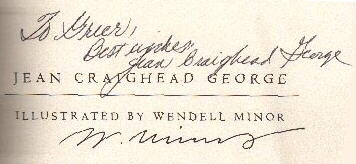 To Greer,
Best wishes,
Jean Craighead George
JEAN CRAIGHEAD GEORGE
ILLUSTRATED BY WENDELL MINOR
W. Minor